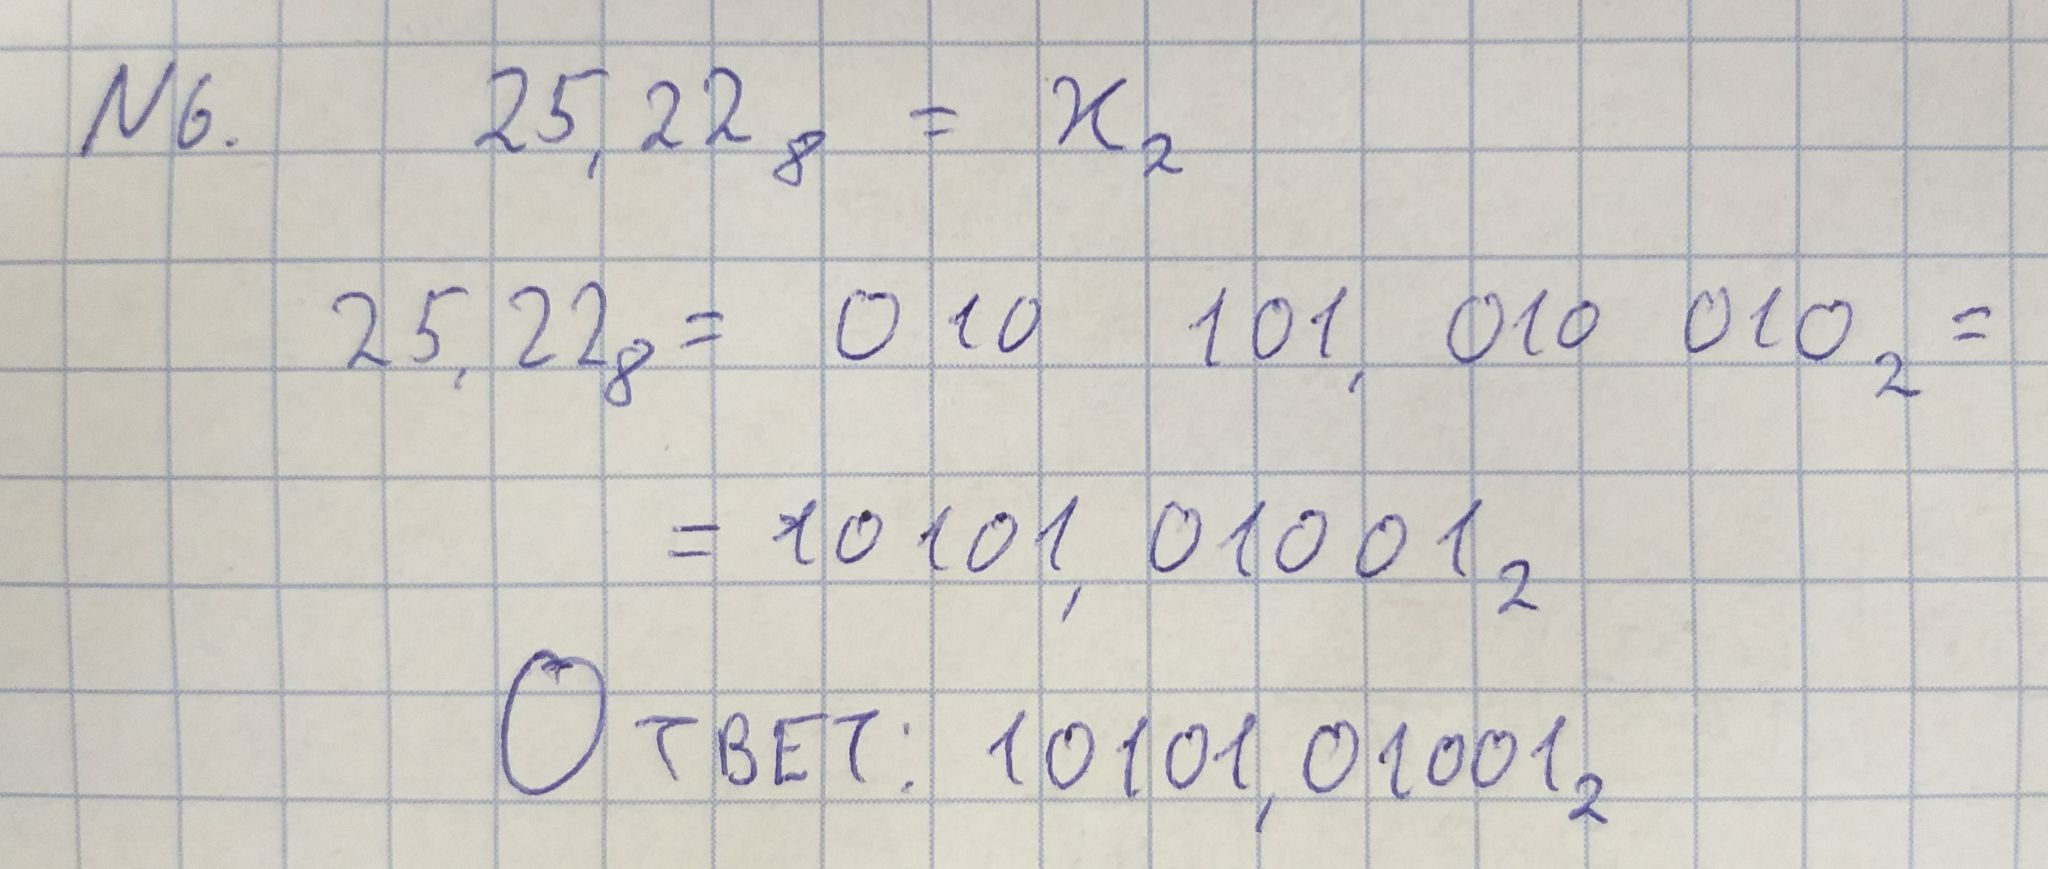 N6. 25,22₈ = x₂
25,22₈ = 010 101, 010 010₂ =
= 10101,01001₂
Ответ: 10101,01001₂